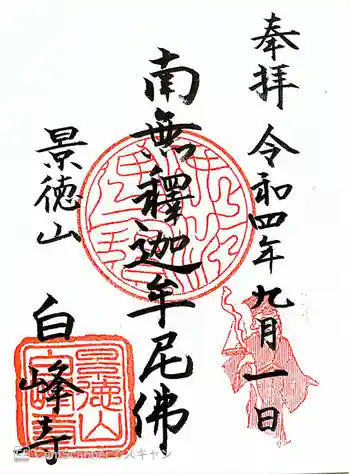 奉拝 令和四年九月一日
南無釋迦牟尼佛
景徳山
白峰寺